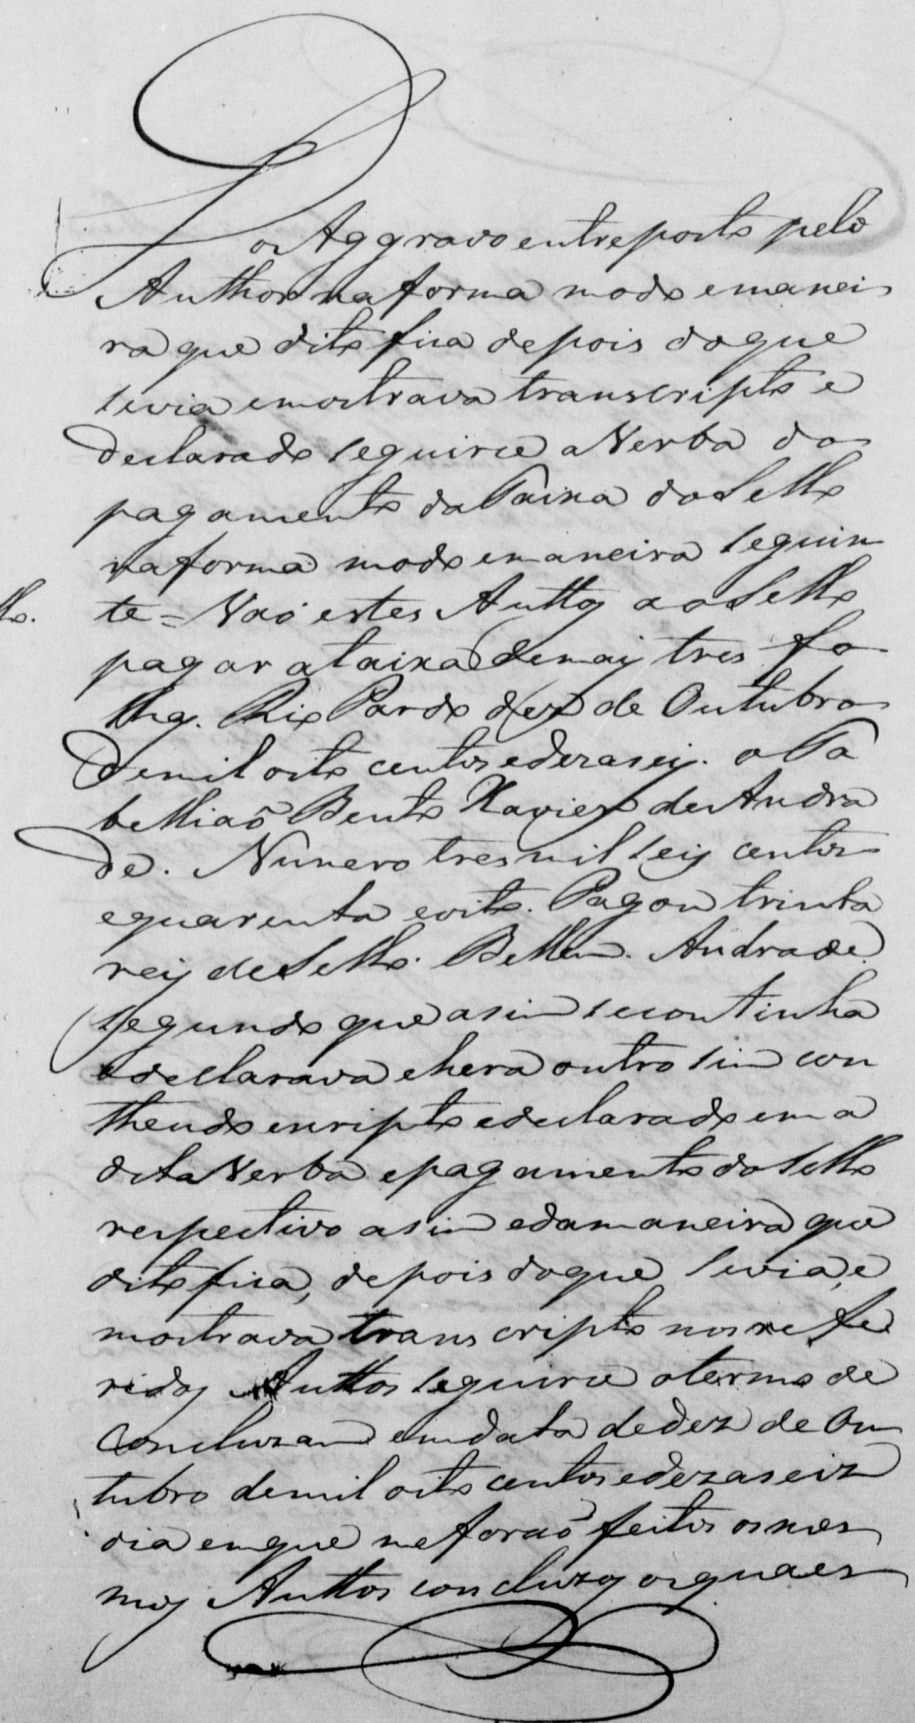 do Aggravo entreposto pelo
Author na forma modo emanei
ra que dito fica depois doque
sevia emostrava transcripto e
declarado seguirce a Verba do
pagamento da Taixa do Sello
na forma modo emaneira seguin
te = Vaõ estes Auttos ao Sello
llo.
pagar a taixa demais tres fo
lhas. Rio Pardo dez de Outubro
demil oito centos edezaseis. o Ta
belliaõ Bento Xavier de Andra
de. Numero tres mil seis centos
equarenta eoito. Pagou trinta
reis de Sello. Bellem. Andrade.
segundo que asim secontinha
edeclarava ehera outro sim con
theudo escripto edeclarado em a
dita Verba epagamento do sello
respectivo asim edamaneira que
dito fica, depois doque sevia, e
mostrava transcripto nos refe
ridos Auttos seguirce o termo de
Concluzam emdata de dez de Ou
tubro demil oito centos edezaseiz
dia emque me foraõ feitos os mes
mos Auttos concluzos osquaes